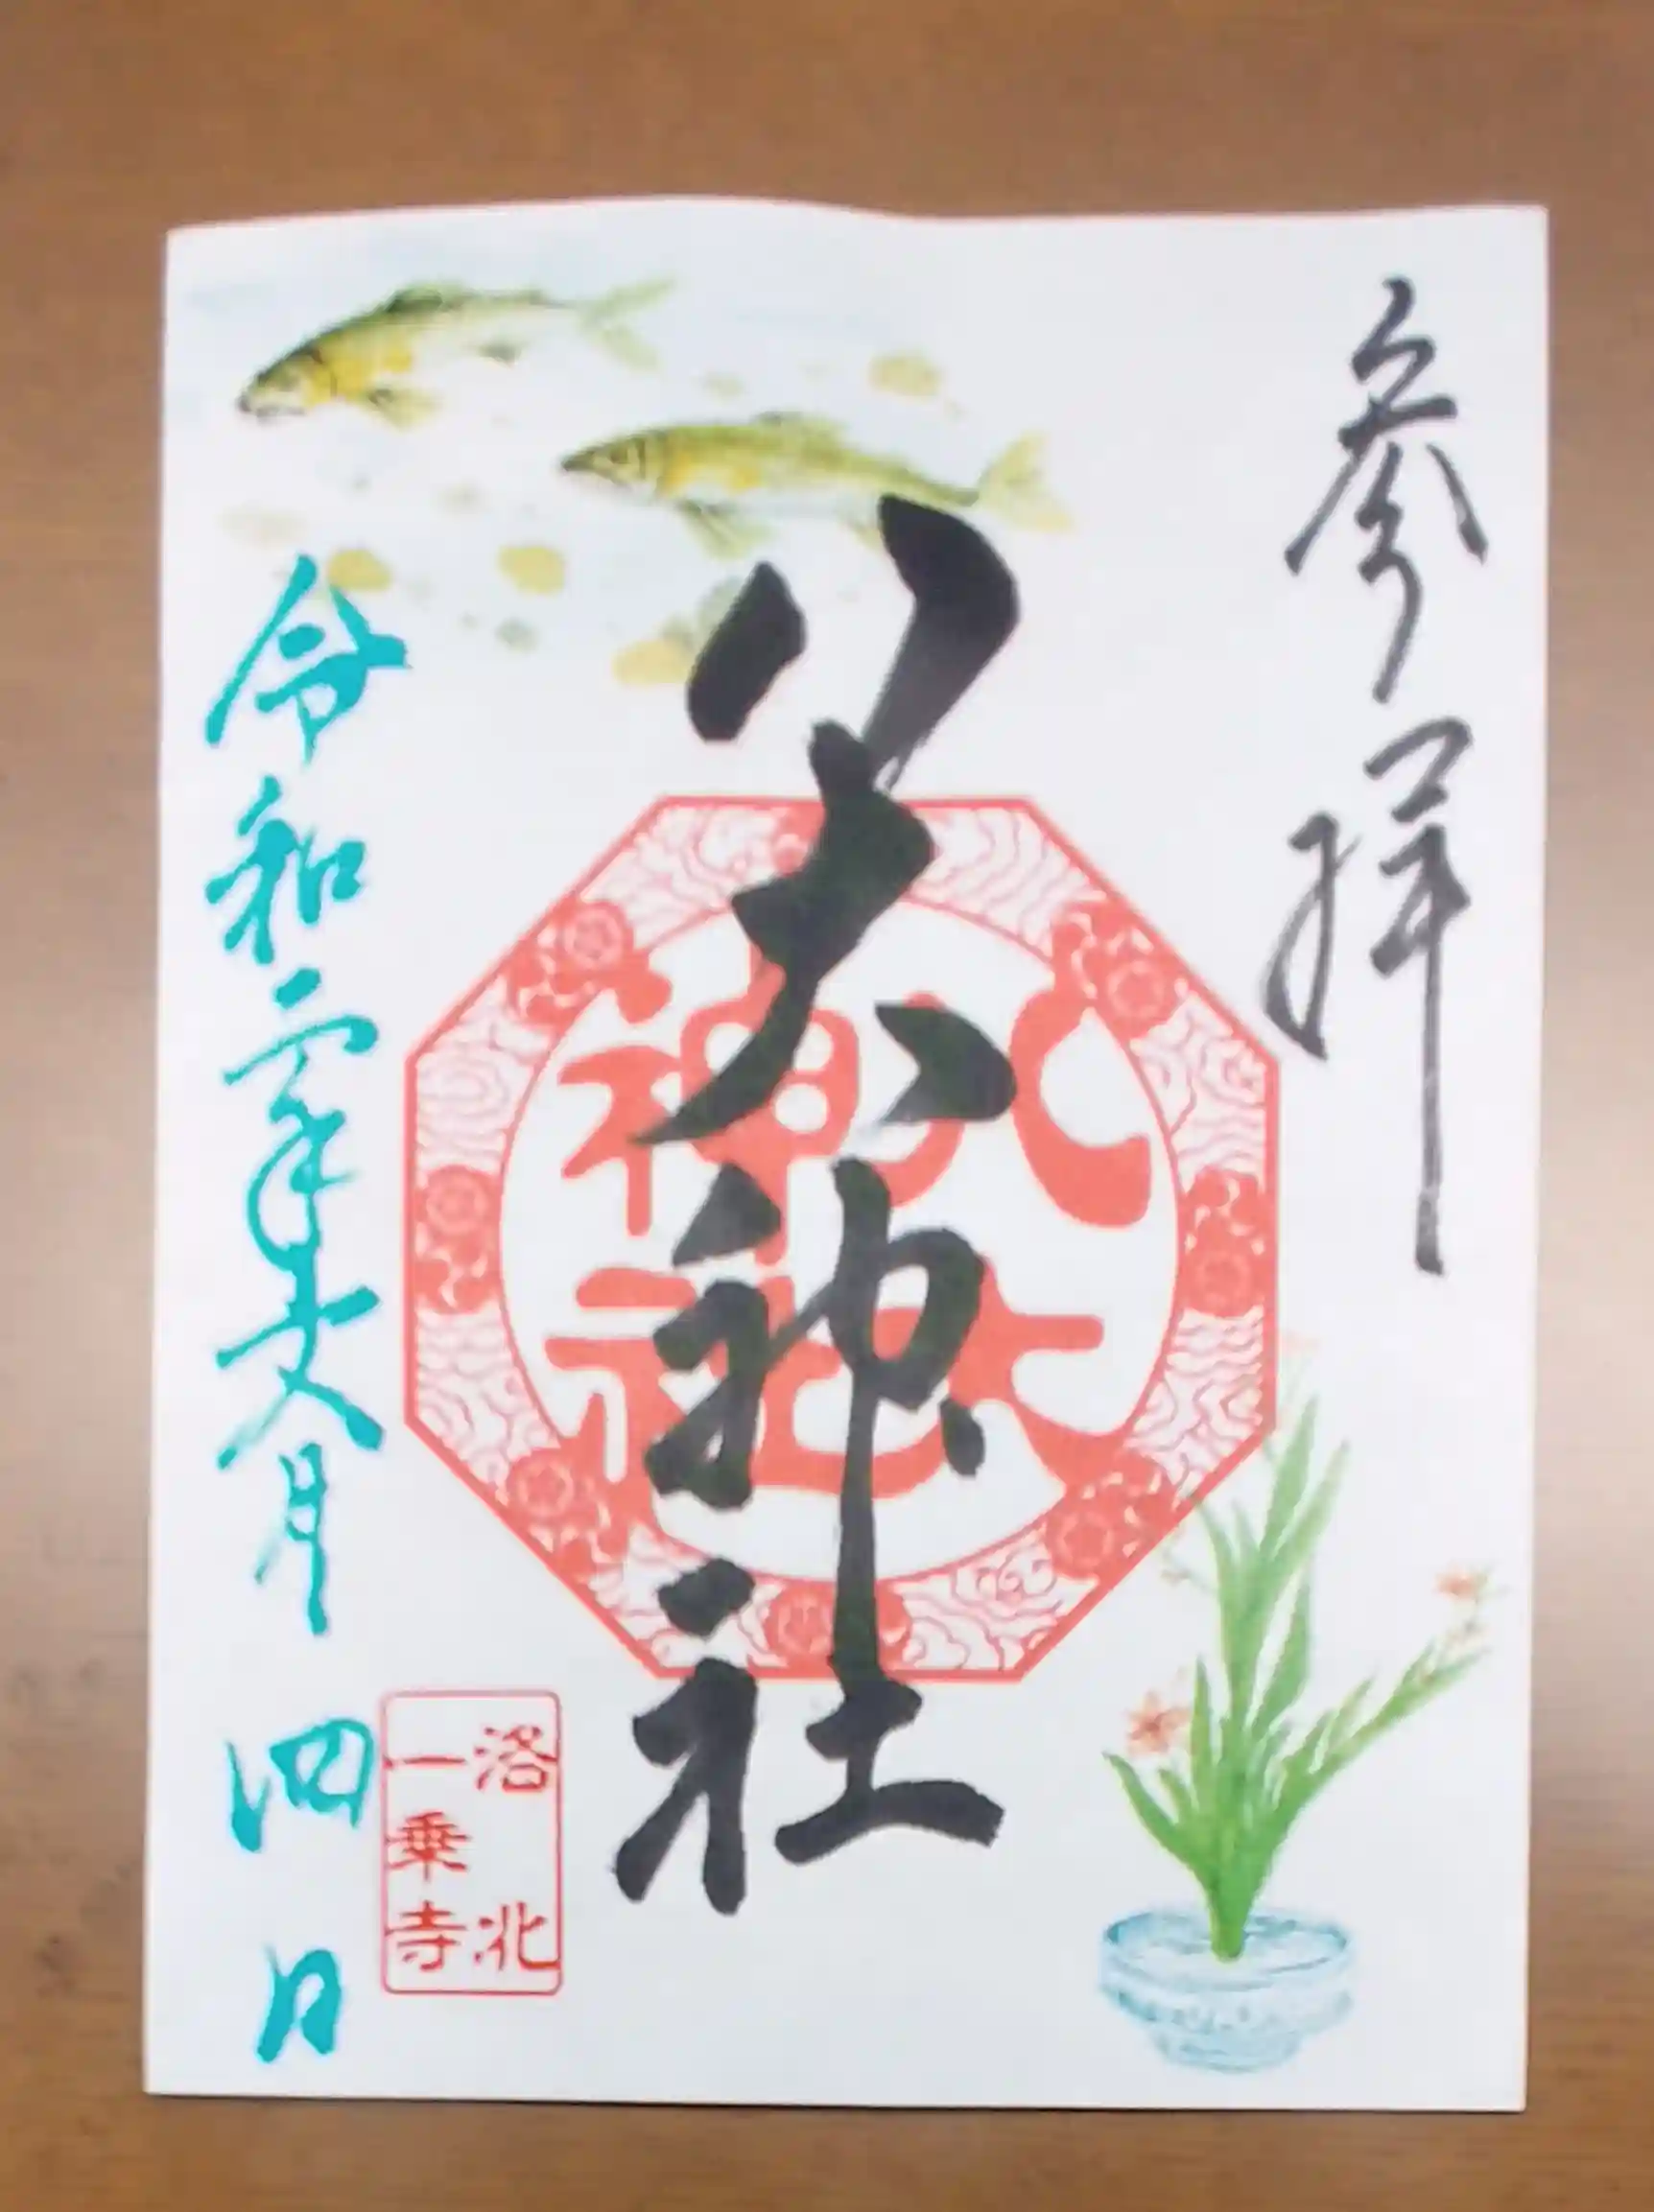 参拝
八大神社
八大
神社
令和年文月四日
洛北
一乗寺